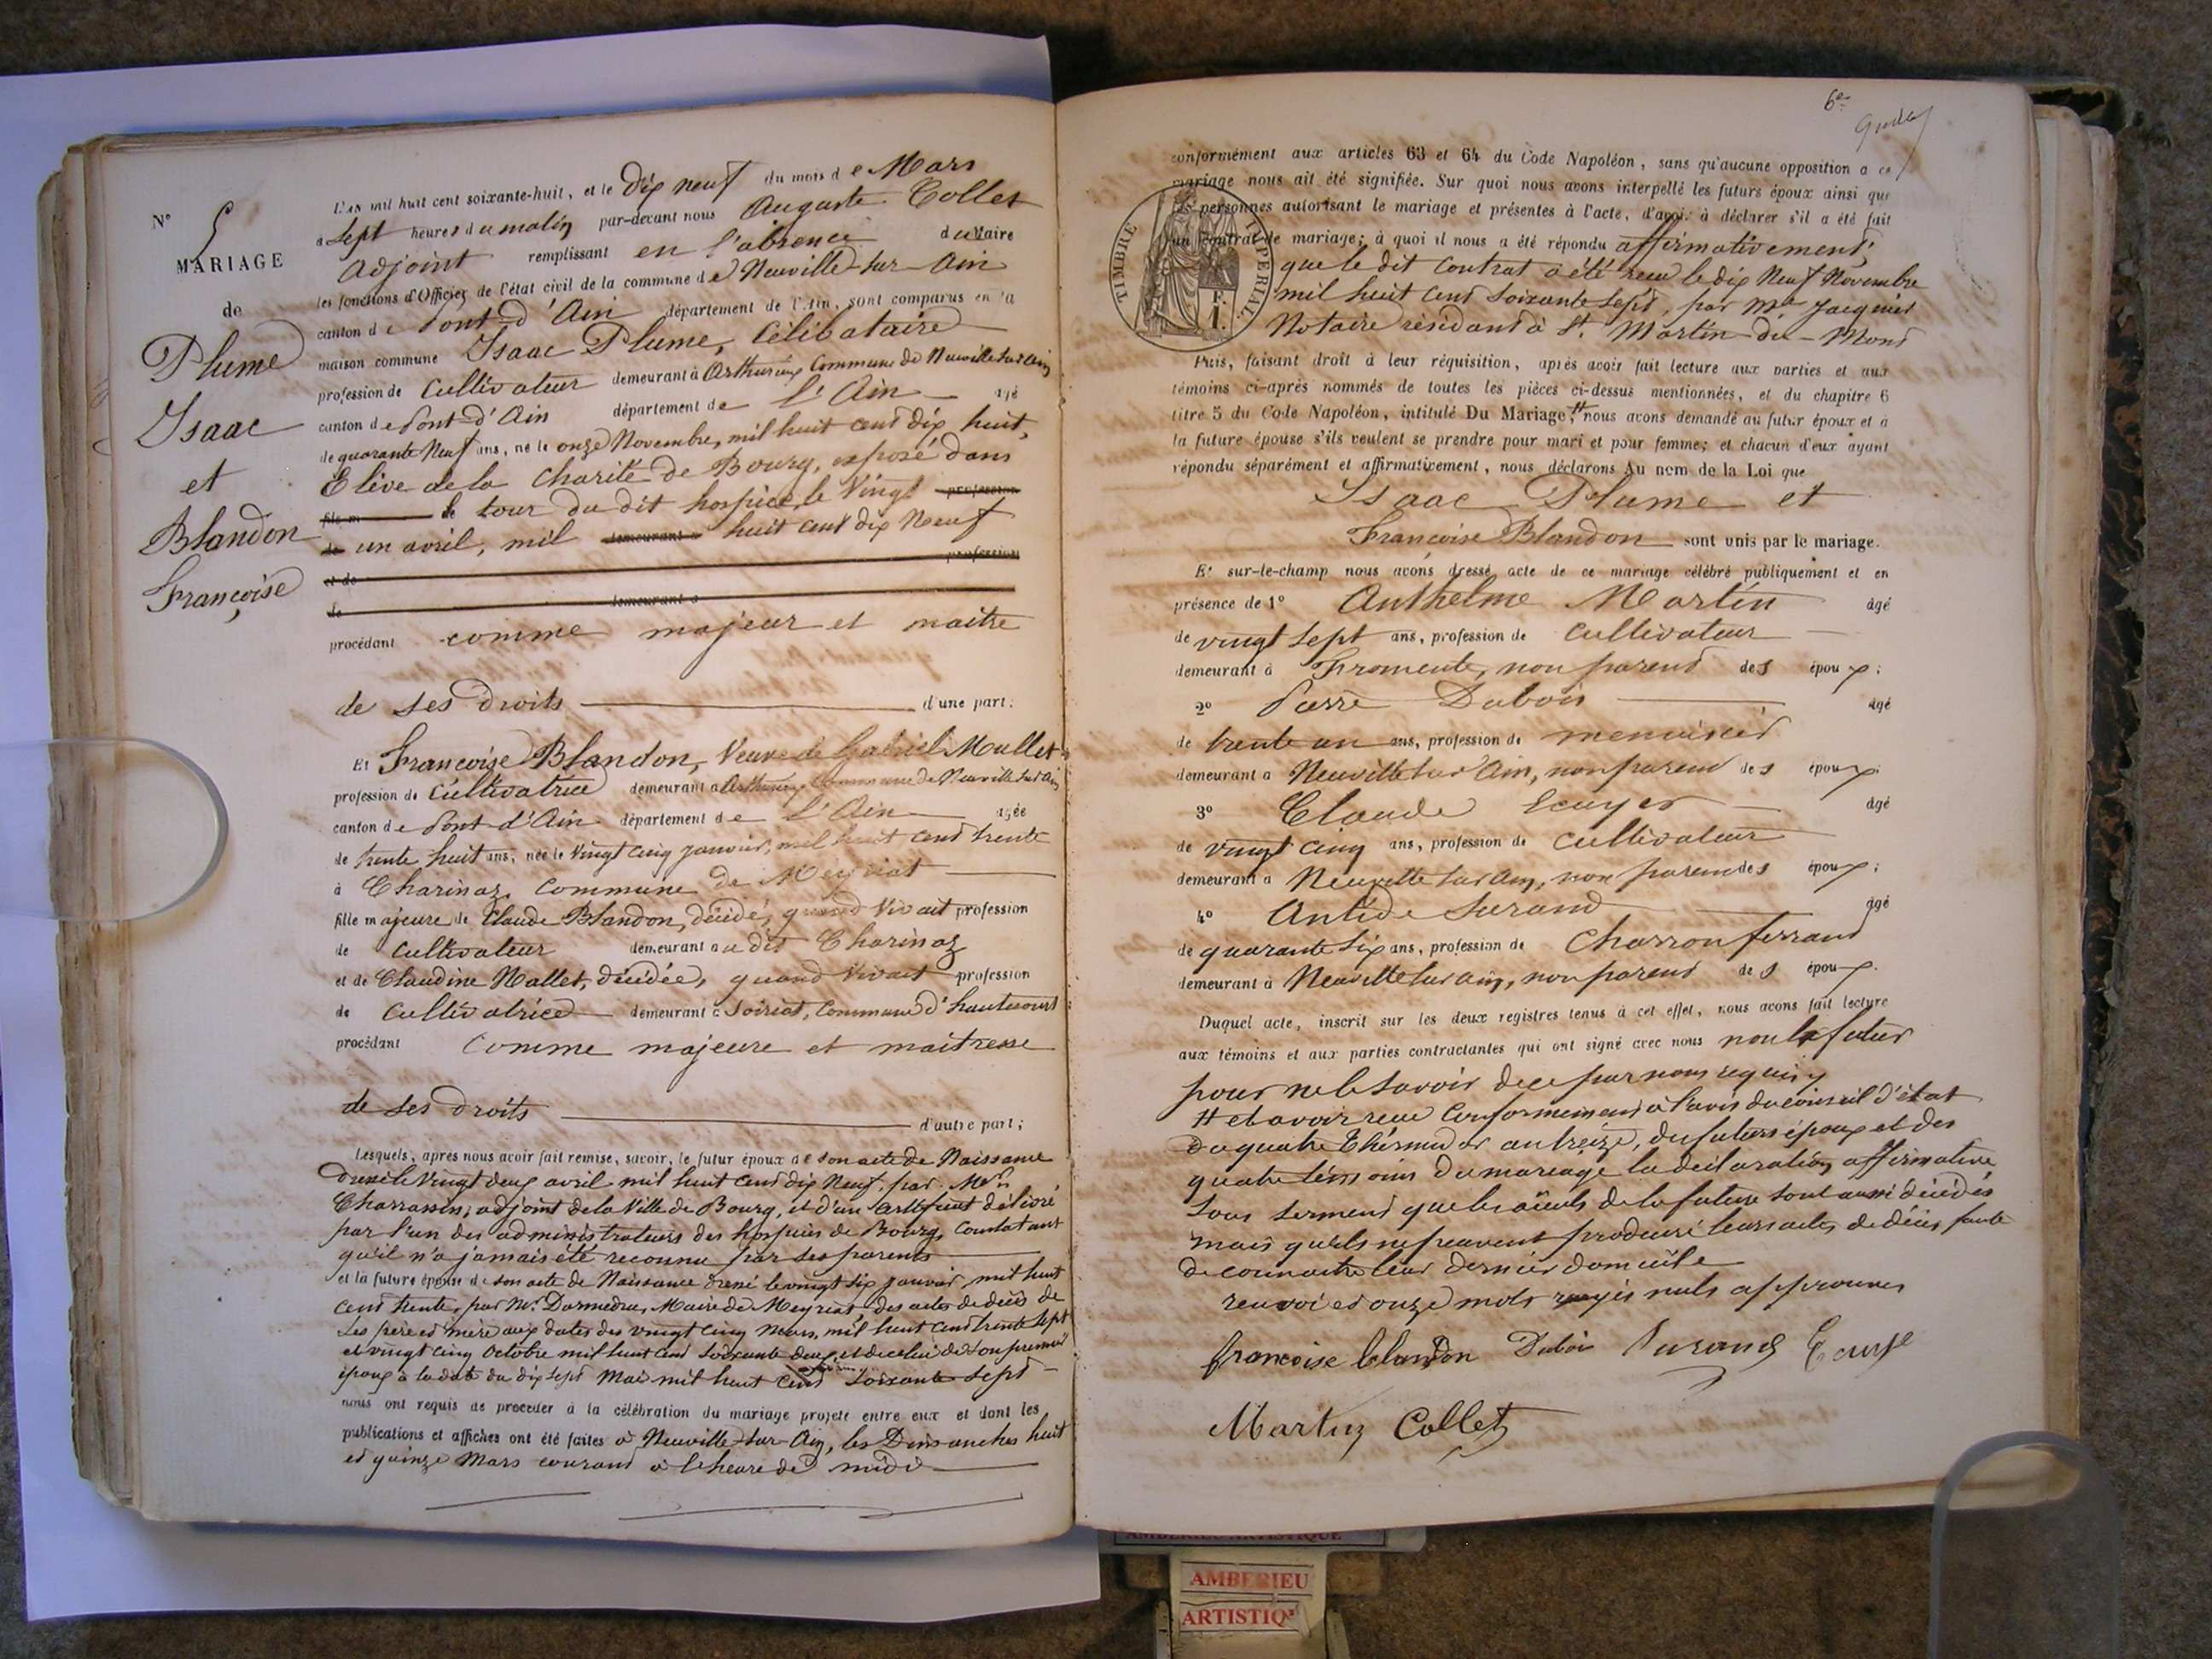 N° 5
MARIAGE
de
Plume
Isaac
et
Blandon
Françoise
L'an mil huit cent soixante-huit, et le dix neuf du mois de Mars
à sept heures du matin par-devant nous Auguste Collet
adjoint remplissant en l'absence du Maire
les fonctions d'Officier de l'état civil de la commune de Neuville-sur-Ain
canton de Pont-d'Ain département de l'Ain, sont comparus en la
maison commune Isaac Plume, Célibataire
profession de Cultivateur demeurant à Commune de Neuville sur Ain
canton de Pont d'Ain département de L'Ain agé
de quarante Neuf ans, né le onze Novembre, mil huit cent dix huit,
Elève de la Charité de Bourg, exposé dans
fils m le tour du dit hospice, le Vingt profession
de un avril, mil demeurant à huit cent dix Neuf
et de profession
de demeurant à
procédant comme majeur et maitre
de ses droits d'une part;
Et Françoise Blandon, Veuve de Gabriel Mallet
profession de Cultivatrice demeurant à Commune de Neuville sur Ain
canton de Pont-d'Ain département de L'Ain agée
de trente huit ans, née le Vingt cinq janvier, mil huit cent trente
à Charinaz, Commune de Meyriat
fille majeure de Claude Blandon, décédé, quand Vivait profession
de Cultivateur demeurant au dit Charinaz
et de Claudine Mallet, décédée, quand Vivait profession
de Cultivatrice demeurant à Soiriat, Commune d'hautecourt
procédant Comme majeure et maitresse
de ses droits d'autre part;
Lesquels, après nous avoir fait remise, savoir, le futur époux de son acte de Naissance
dressé le Vingt deux avril mil huit cent dix Neuf, par Mr
Charrassin, adjoint de la Ville de Bourg, et d'un Certificat délivré
par l'un des administrateurs des hospices de Bourg, Constatant
qu'il n'a jamais été reconnu par ses parents
et la future épouse de son acte de Naissance dressé le vingt six janvier, mil huit
cent trente, par Mr Maire de Meyriat, des actes de décès de
ses père et mère aux dates des vingt cinq Mars, mil huit cent trente sept
et vingt cinq Octobre mil huit cent soixante deux, et de celui de son premier
époux à la date du dix sept Mai mil huit cent soixante sept
nous ont requis de procéder à la célébration du mariage projeté entre eux et dont les
publications et affiches ont été faites à Neuville-sur-Ain, les Dimanches huit
et quinze Mars courant à l'heure de midi
6e
TIMBRE IMPERIAL
F.
1.
conformément aux articles 63 et 64 du Code Napoléon, sans qu'aucune opposition a ce
mariage nous ait été signifiée. Sur quoi nous avons interpellé les futurs époux ainsi que
les personnes autorisant le mariage et présentes à l'acte, d'avoir à déclarer s'il a été fait
un contrat de mariage; à quoi il nous a été répondu affirmativement,
que le dit Contrat a été reçu le dix Neuf Novembre
mil huit cent soixante sept, par Me Jacquier
Notaire résidant à St. Martin-du-Mont
Puis, faisant droit à leur réquisition, après avoir fait lecture aux parties et aux
témoins ci-après nommés de toutes les pièces ci-dessus mentionnées, et du chapitre 6
titre 5 du Code Napoléon, intitulé Du Mariage,# nous avons demandé au futur époux et à
la future épouse s'ils veulent se prendre pour mari et pour femme; et chacun d'eux ayant
répondu séparément et affirmativement, nous déclarons Au nom de la Loi que
Isaac Plume et
Françoise Blandon sont unis par le mariage.
Et sur-le-champ nous avons dressé acte de ce mariage célébré publiquement et en
présence de 1° Anthelme Martin âgé
de vingt sept ans, profession de Cultivateur
demeurant à Fromente, non parent des époux;
2° Pierre Dubois âgé
de trente un ans, profession de menuisier
demeurant à Neuville sur Ain, non parent des époux;
3° Claude Ecuyer âgé
de vingt cinq ans, profession de Cultivateur
demeurant à Neuville sur Ain, non parent des époux;
4° Antide Durand âgé
de quarante six ans, profession de Charron ferrand
demeurant à Neuville sur Ain, non parent des époux.
Duquel acte, inscrit sur les deux registres tenus à cet effet, nous avons fait lecture
aux témoins et aux parties contractantes qui ont signé avec nous non le futur
pour ne le savoir de ce par nous requis
# et avoir reçu Conformément à l'avis du conseil d'état
du quatre Thermidor an treize, des futurs époux et des
quatre témoins du mariage la déclaration affirmative
sous serment que les aïeuls de la future sont aussi décédés
mais qu'ils ne peuvent produire leurs actes de décès faute
de connaitre leur dernier domicile
renvoi et onze mots rayés nuls approuvés
francoise blandon Dubois Durand Ecuyer
Martin Collet
AMBERIEU ARTISTIQUE
AMBERIEU
ARTISTIQ